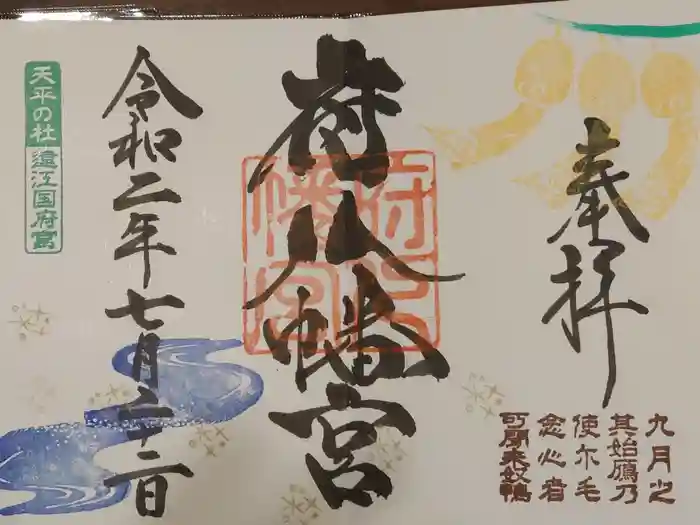 奉拝
九月之
其始鴈乃
使尓毛
念心者
可聞来奴鴨
府八幡宮
府八
幡宮
令和二年七月二十二日
天平の杜
遠江国府宮